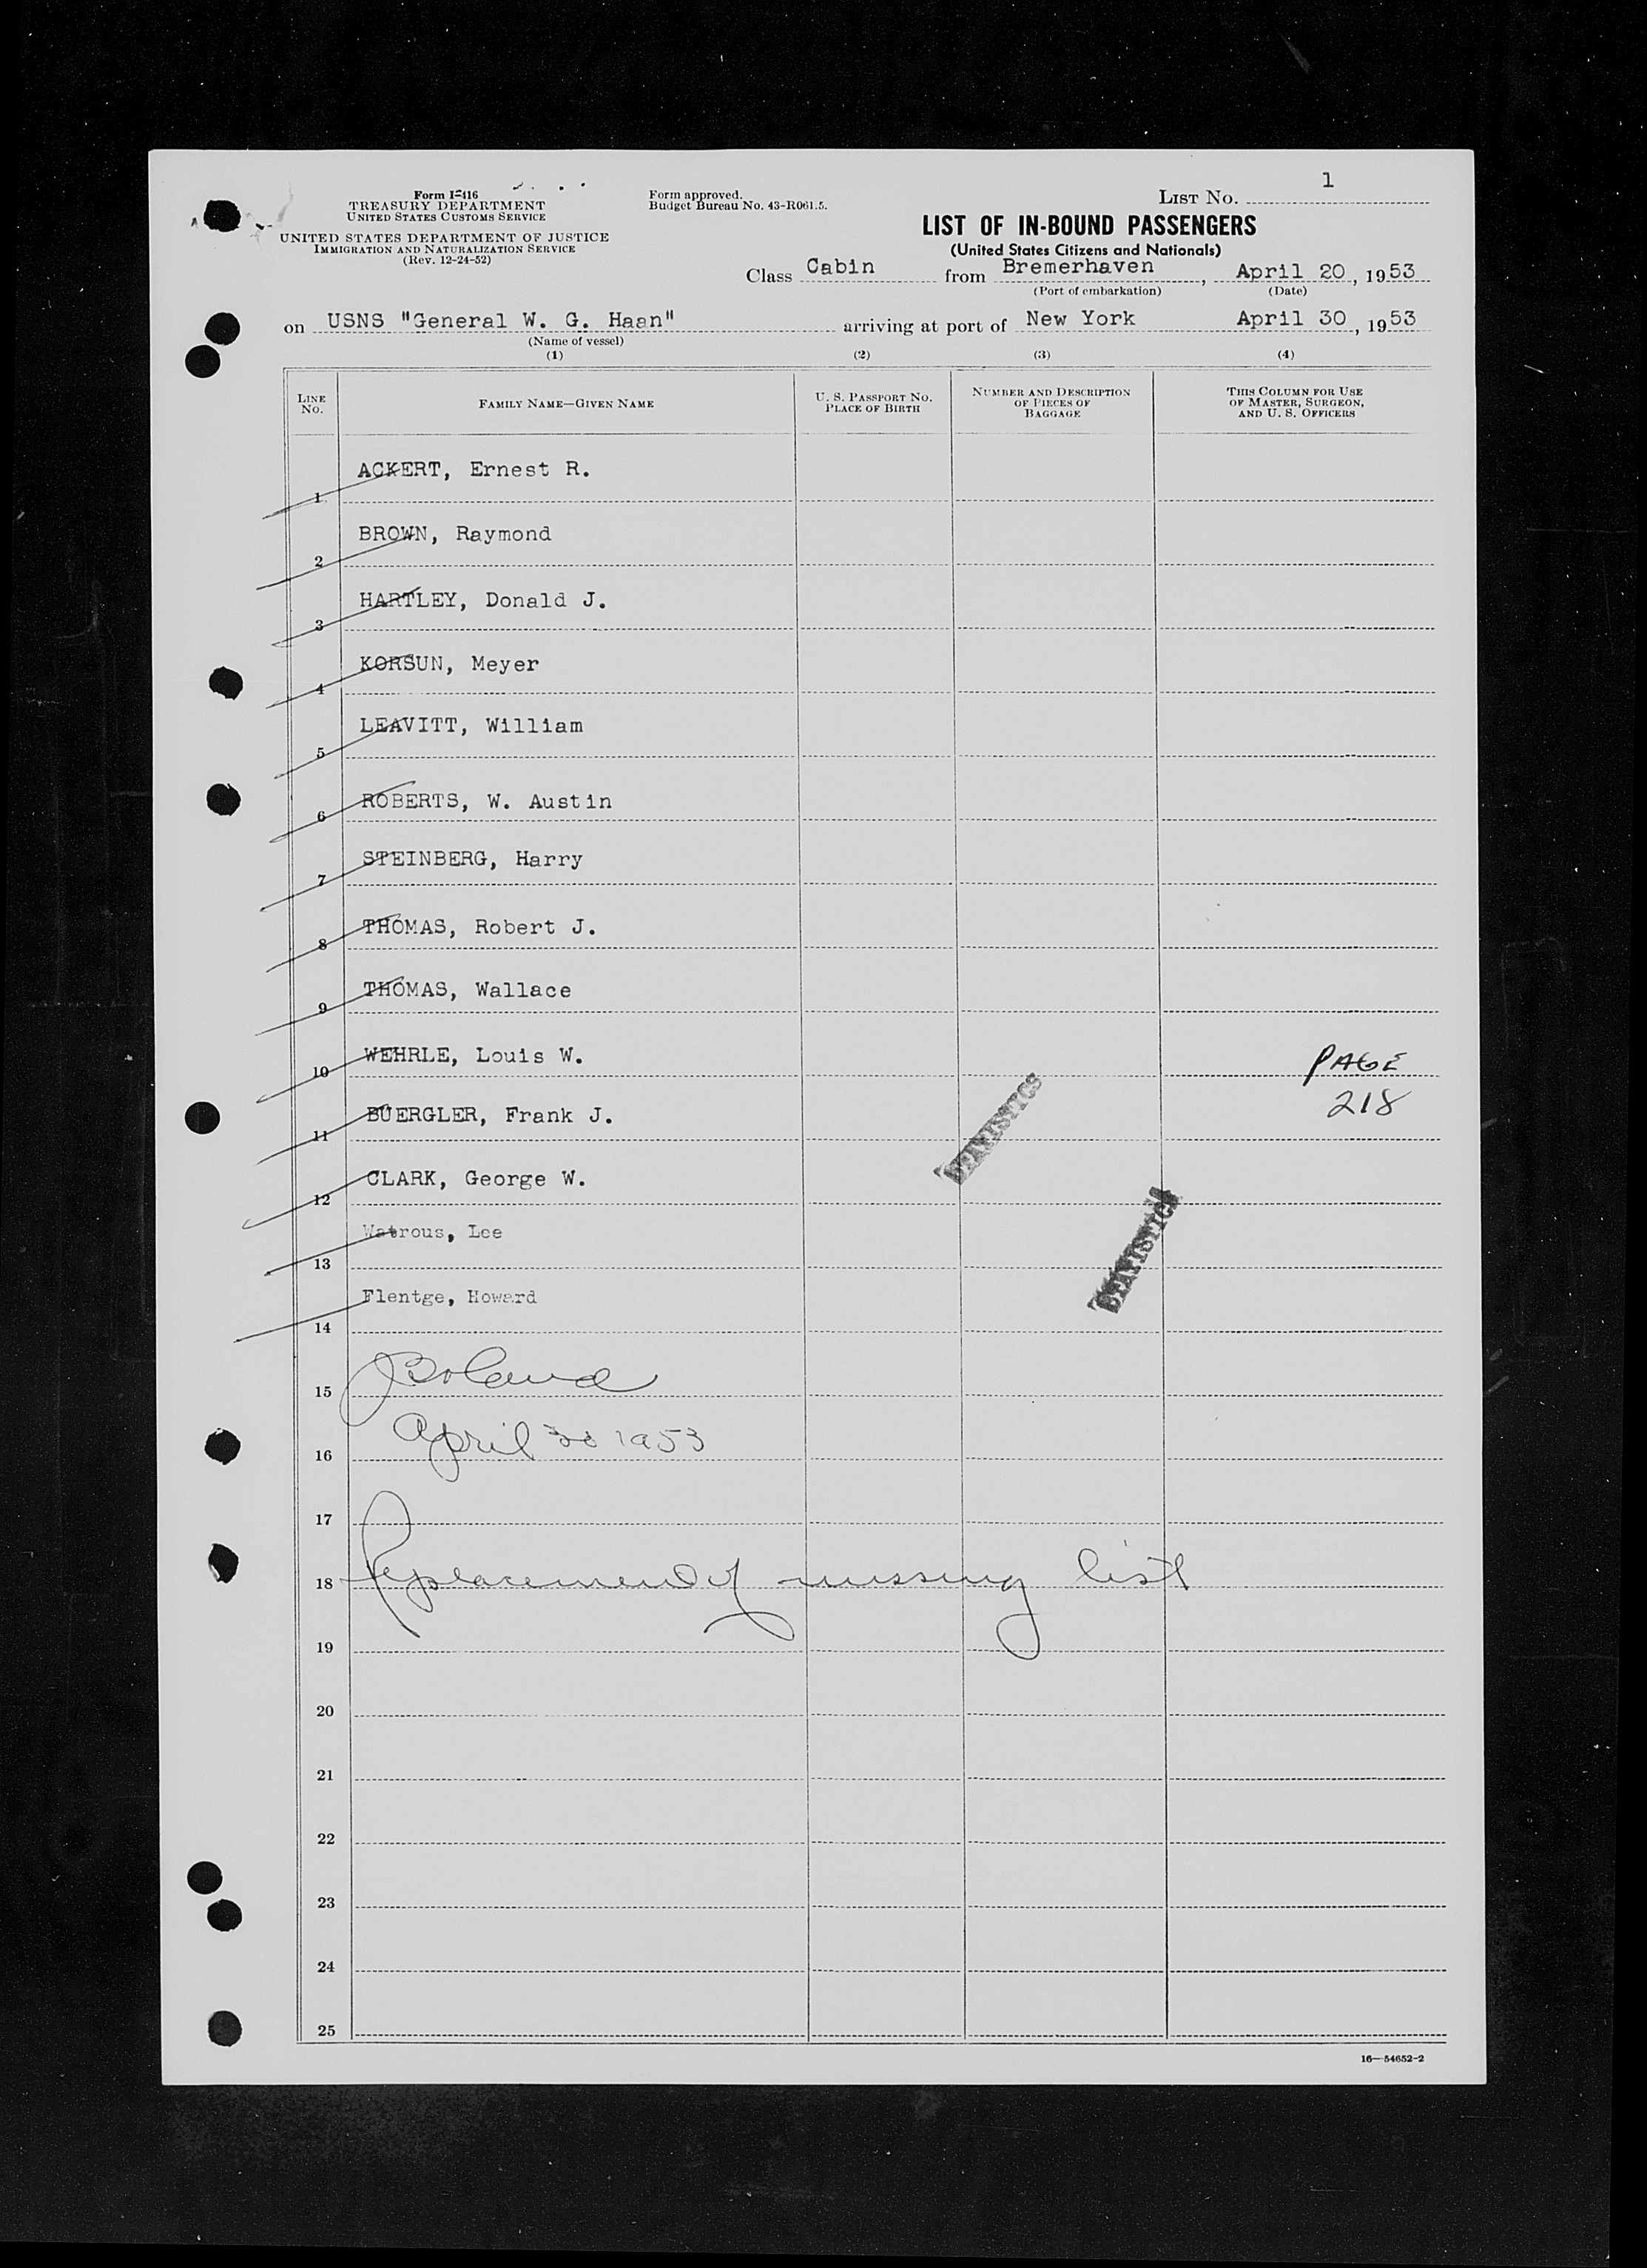 1
Form I-416
TREASURY DEPARTMENT
UNITED STATES CUSTOMS SERVICE
UNITED STATES DEPARTMENT OF JUSTICE
IMMIGRATION AND NATURALIZATION SERVICE
(Rev. 12-24-52)
Form approved.
Budget Bureau No. 43-R061.5.
LIST No.
LIST OF IN-BOUND PASSENGERS
(United States Citizens and Nationals)
Class Cabin from Bremerhaven, April 20, 1953
(Port of embarkation) (Date)
on USNS "General W. G. Haan" arriving at port of New York April 30, 1953
(Name of vessel)
(1) (2) (3) (4)
LINE No. FAMILY NAME—GIVEN NAME U. S. PASSPORT No. PLACE OF BIRTH NUMBER AND DESCRIPTION OF PIECES OF BAGGAGE THIS COLUMN FOR USE OF MASTER, SURGEON, AND U. S. OFFICERS
1 ACKERT, Ernest R.
2 BROWN, Raymond
3 HARTLEY, Donald J.
4 KORSUN, Meyer
5 LEAVITT, William
6 ROBERTS, W. Austin
7 STEINBERG, Harry
8 THOMAS, Robert J.
9 THOMAS, Wallace
10 WEHRLE, Louis W. PAGE
218
11 BUERGLER, Frank J.
STATISTICS
12 CLARK, George W.
13 Watrous, Lee
STATISTICS
14 Flentge, Howard
15 JBoland
16 April 30 1953
17
18 Replacement of missing list
19
20
21
22
23
24
25
16—54652-2